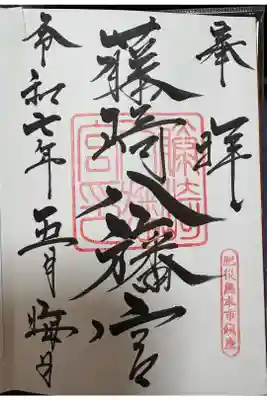 奉拝
藤崎八旛宮
令和七年五月晦日
藤崎八旛宮印
肥後熊本市鎮座